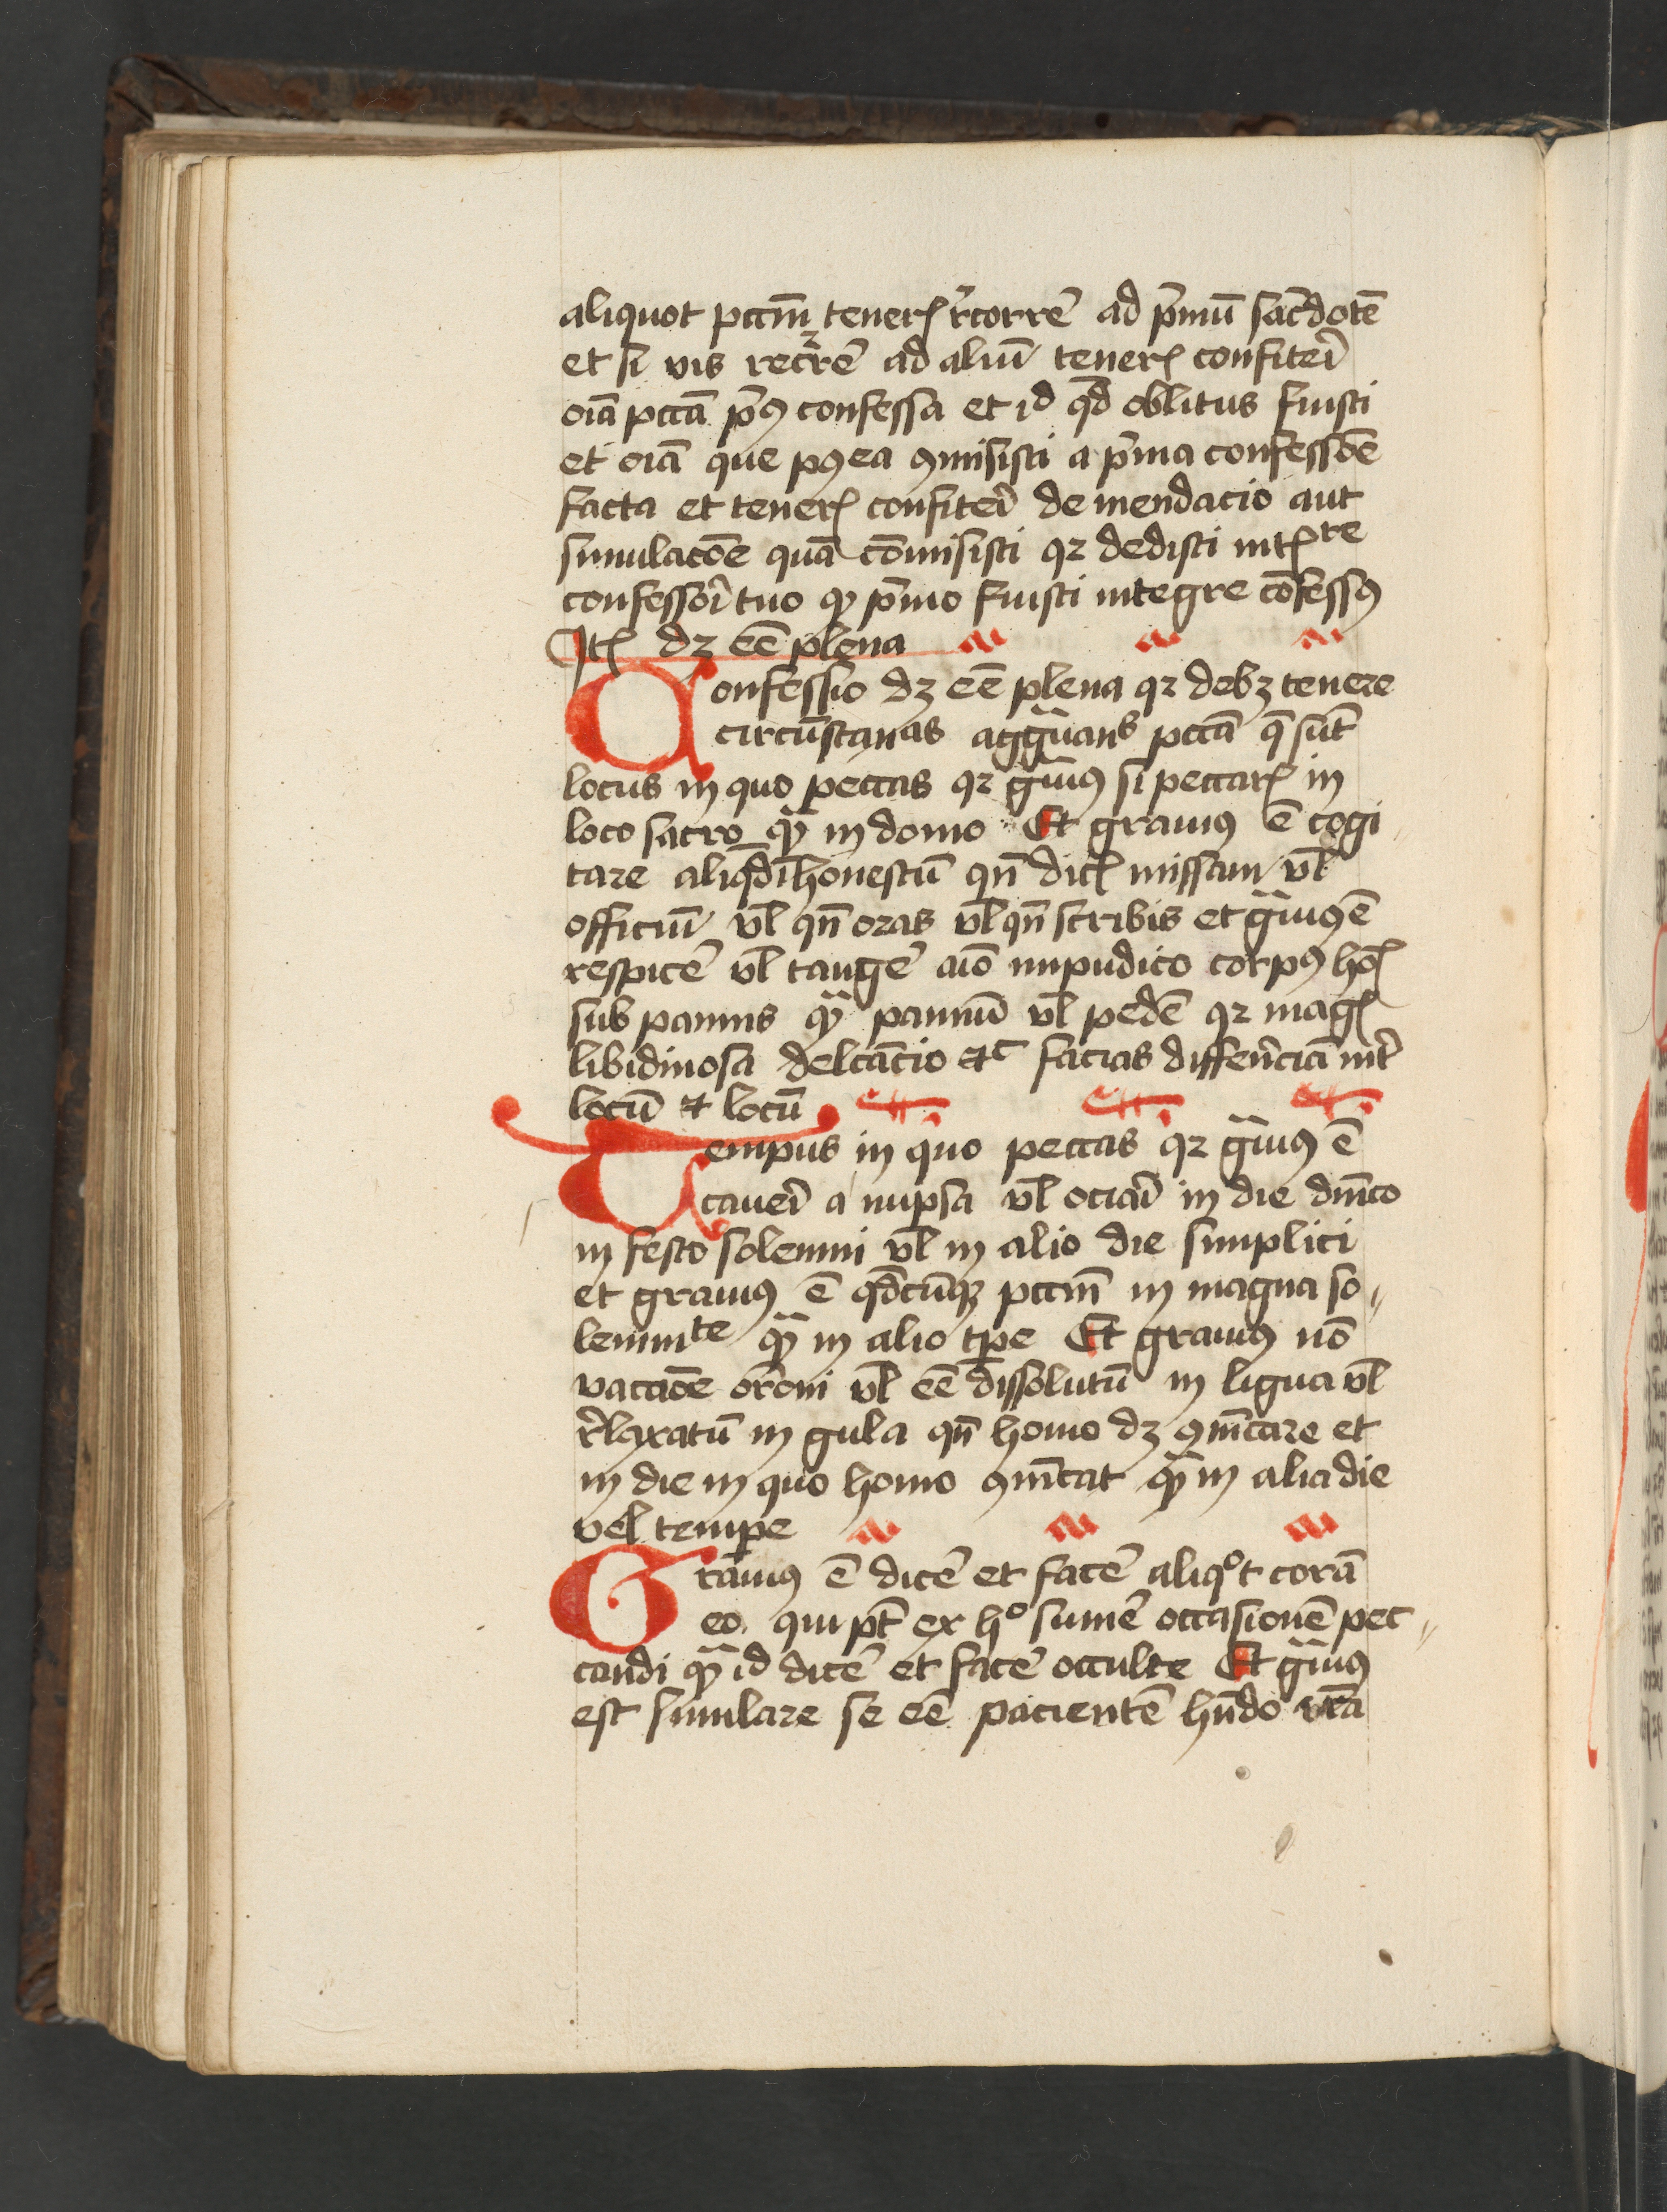 aliquot pccm̄ teneris rͥcorrē ad pͥmū sac̄dotē
et si vis recrꝛē ad aliū teneris confiteri
oīa pccā pͥꝰ confessa et id qd̄ oblitus fuisti
et oīa que pꝰea ꝯmisisti a pͥma confessōe
facta et teneris confiteri de mendacio aut
simulacōe quā cōmisisti qꝛ dedisti intꝑre
confessori tuo ꝙ pͥmo fuisti integre cōfessꝰ
Itē dꝫ eē plena
Confessio dꝫ eē plena qꝛ debꝫ tenere
circūstancias agg̃uans pccā q̄ sūt
locus in quo peccas qꝛ g̃uiꝰ si peccaris in
loco sacro ꝙ̃ in domo Et grauiꝰ ē cogi
tare aliqd̄ īhonestū qn̄ dicis missam vl̄
officiū vl̄ qn̄ oras vl̄ qn̄ scribis et g̃uiꝰ ē
respicē vl̄ tangē aīo impudico corpꝰ hoīs
sub pannis ꝙ̃ pannū vl̄ pedē qꝛ magis
libidinosa delcātio ⁊c facias differēciā int̄
locū ⁊ locū
Tempus in quo peccas qꝛ g̃uiꝰ ē
caueri a nupsa vl̄ ociari in die dn̄ico
in festo solemni vl̄ in alio die simplici
et grauiꝰ ē qd̄cūqꝫ pccm̄ in magna so
lemnite ꝙ̃ in alio tꝑe Et grauiꝰ nō
vaccaōe orōni vl̄ eē dissolutū in ligua vl̄
rͥlaxatū in gula qn̄ homo dꝫ ꝯmīcare et
in die in quo homo ꝯmīcat ꝙ̃ in alia die
vel tempe
Grauiꝰ ē dicē et facē aliqͦt corā
eo qui pt̄ ex hͦ sumē occasionē pec
candi ꝙ̃ id dicē et facē occulte Et g̃uiꝰ
est simulare se eē pacientē hn̄do vr̄a